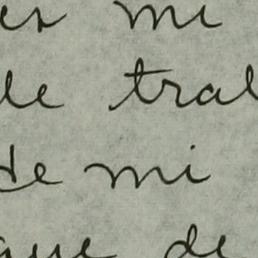 es mi
de tral
de mi
que de